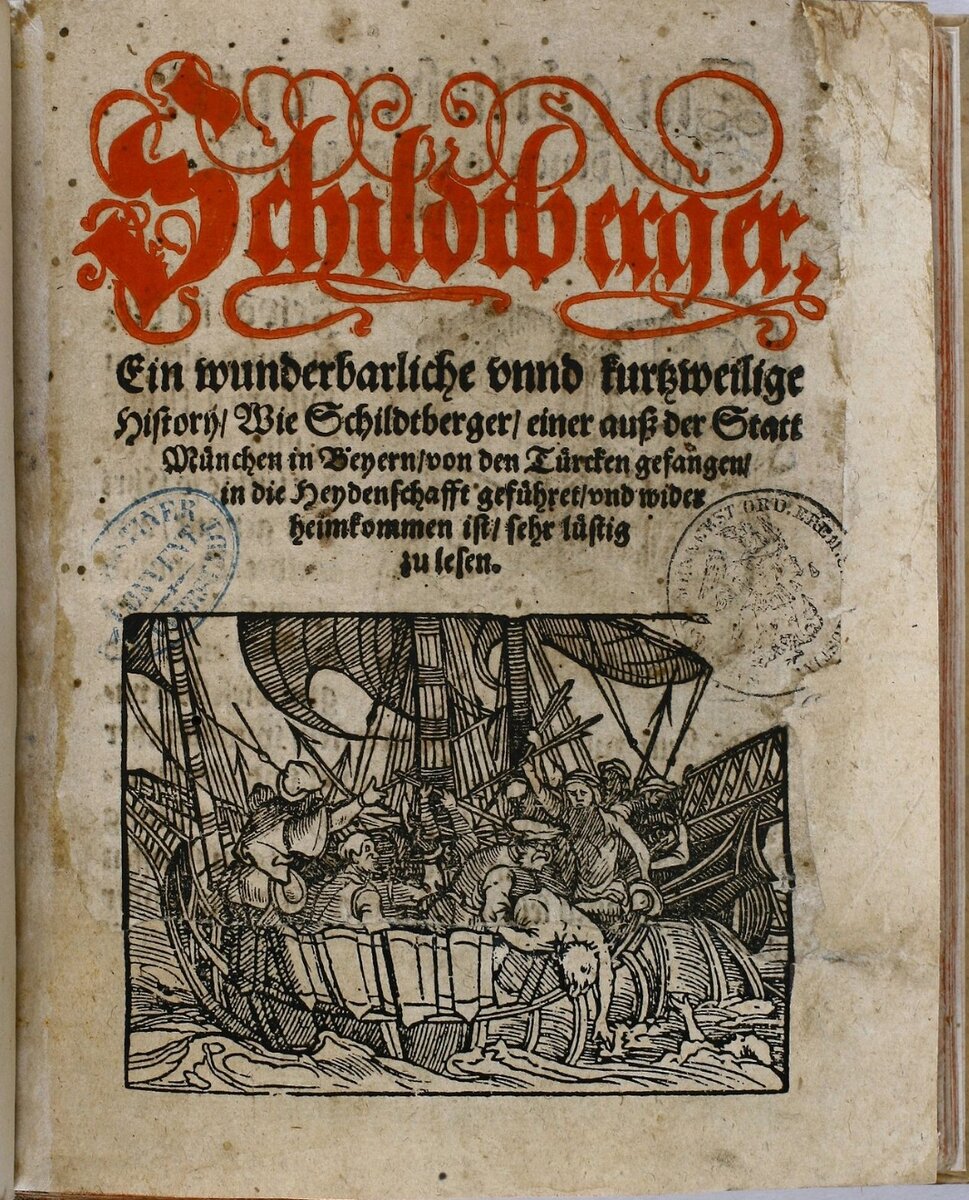 Schildtberger,
Ein wunderbarliche vnnd kurtzweilige
History/ Wie Schildtberger/ einer auß der Statt
München in Beyern/ von den Türcken gefangen/
in die Heydenschafft geführet/ vnd wider
heimkommen ist/ sehr lüstig
zu lesen.
CONVENT
ORD. EREM.